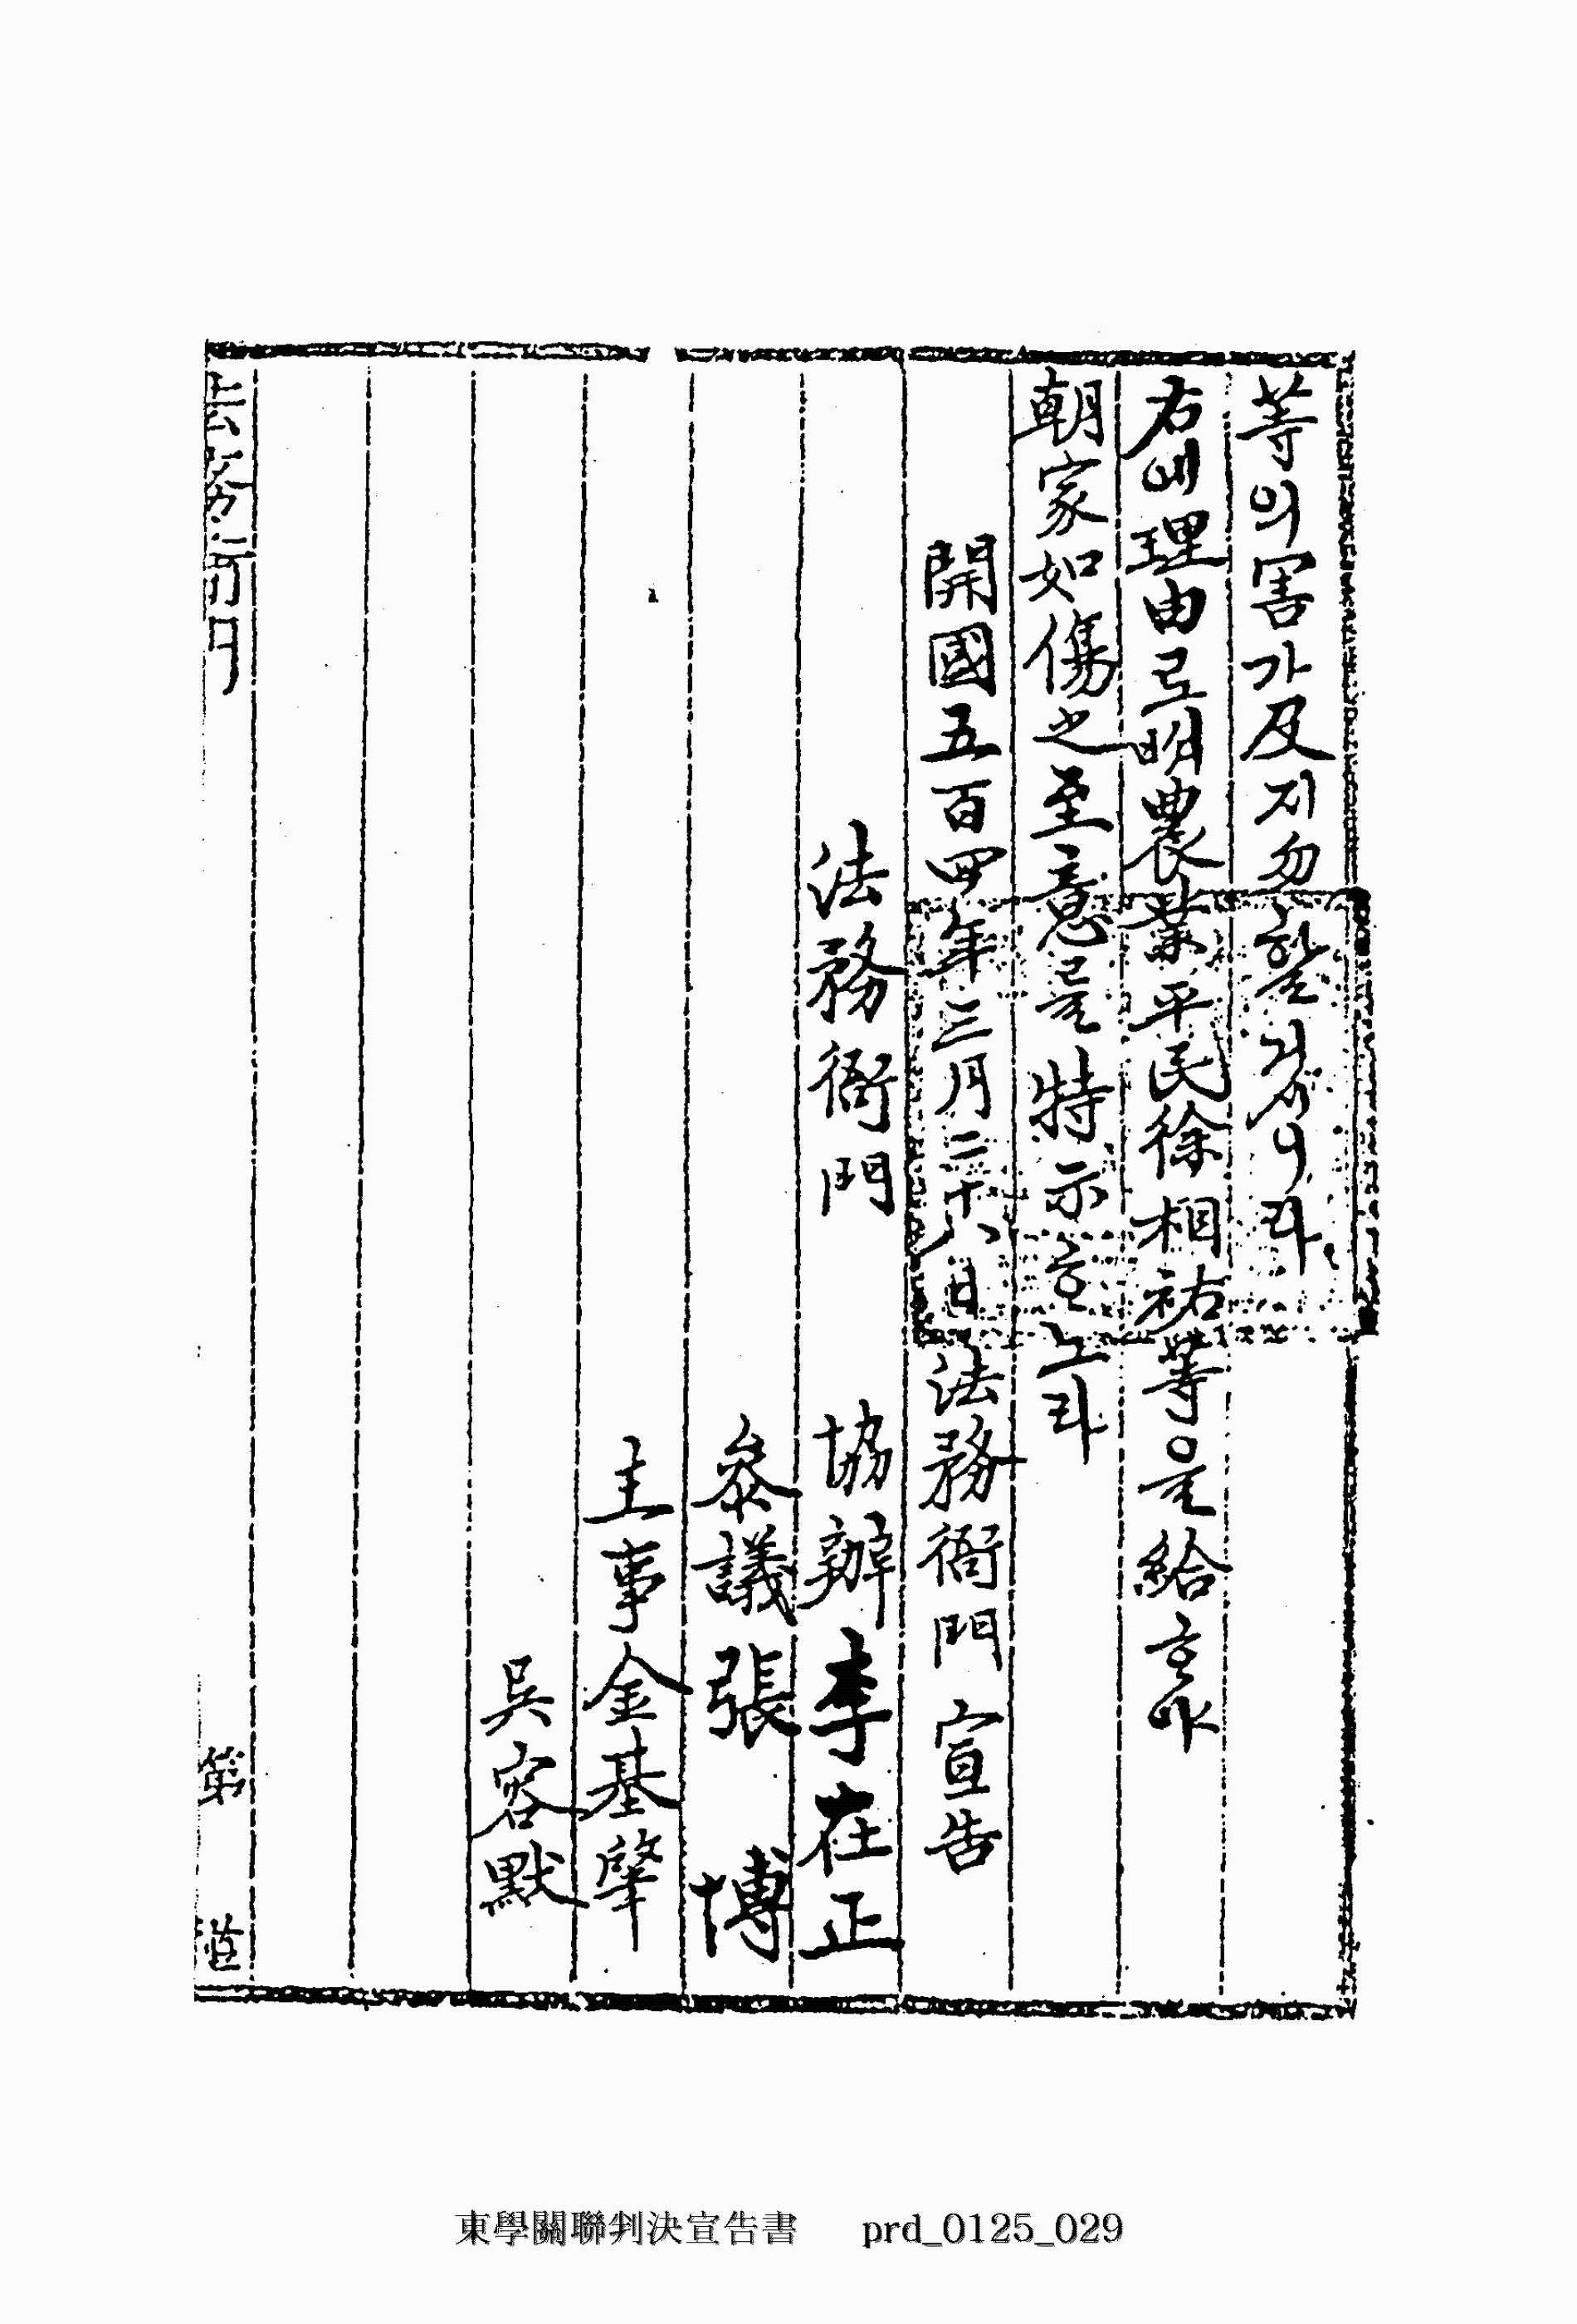 等의害가及지勿할거시니라
右에理由로明農業平民徐相祐等을給ᄒᆞ야
朝家如傷之至意를特示ᄒᆞ노라
開國五百四年三月二十八日法務衙門宣告
法務衙門 協辦李在正
叅議張 博
主事金基肇
吳容默
法務衙門 第
東學關聯判決宣告書 prd_0125_029